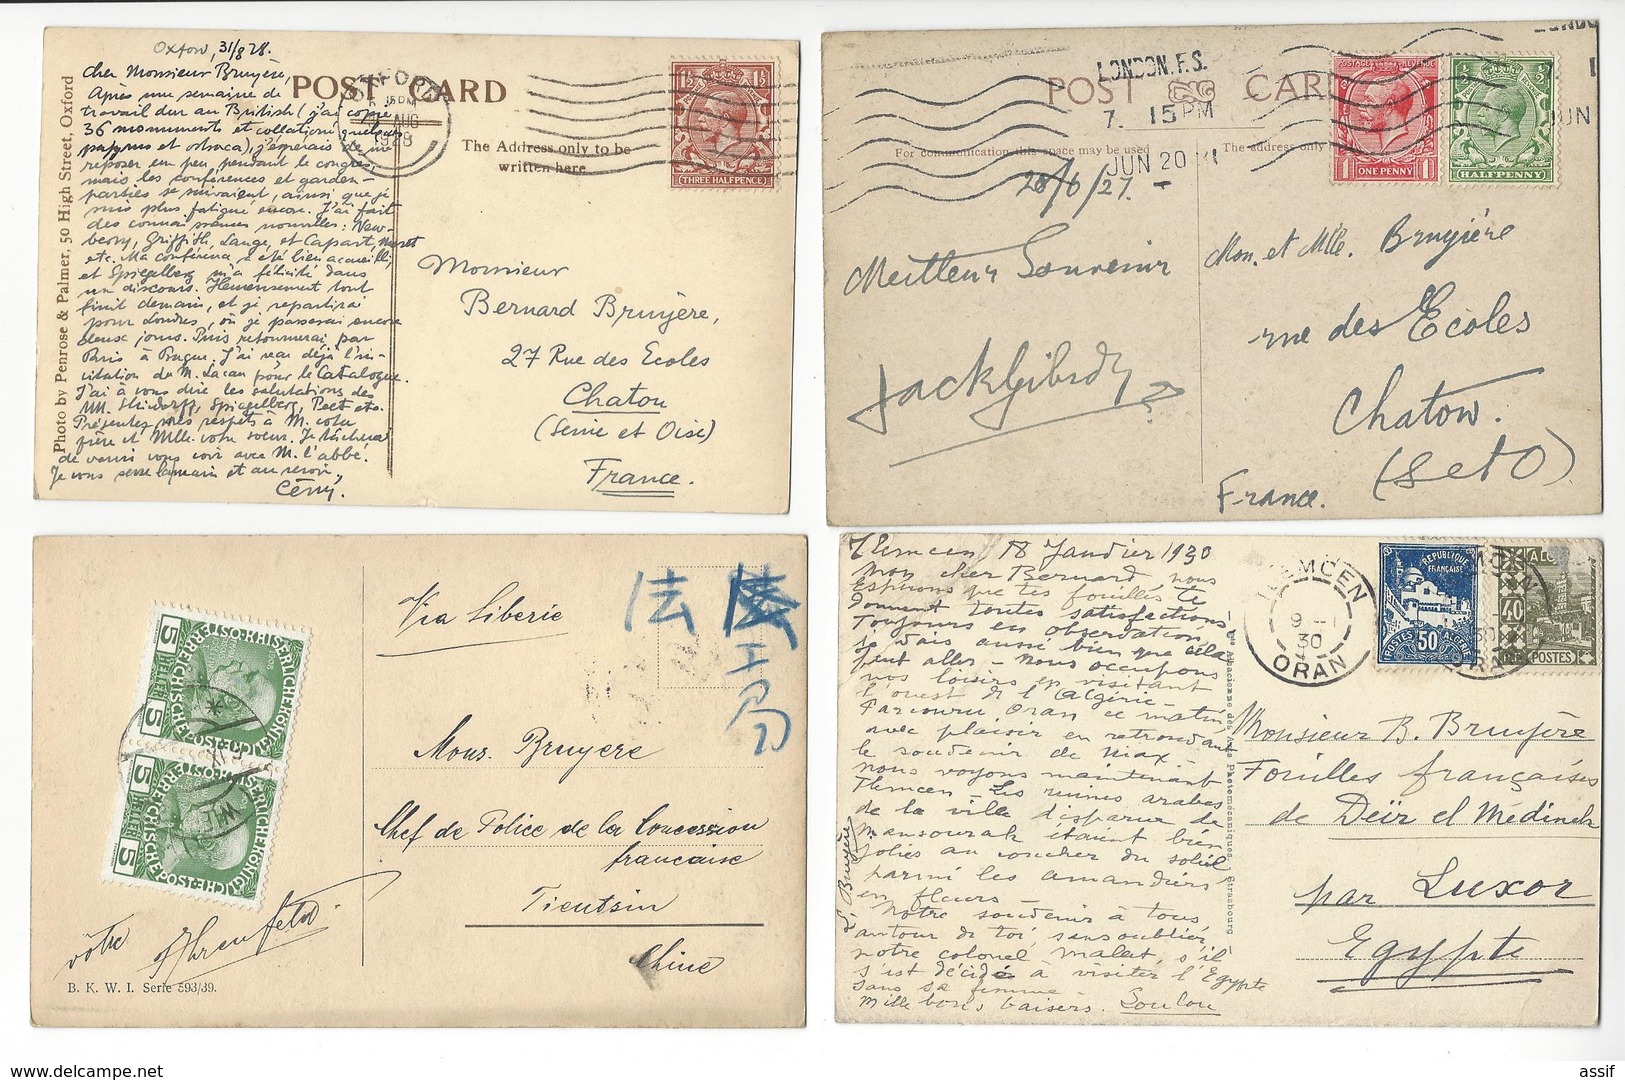 Oxford, 31/8 28.
Cher Monsieur Bruyère,
Après une semaine de
travail dur au British (j'ai copié
36 monuments et collationé quelques
papyrus et ostraca), j'espérais de me
reposer un peu pendant le congrès,
mais les conférences et garden-
parties se suivaient, ainsi que je
suis plus fatigué encore. J'ai fait
des connaissances nouvelles: New-
berry, Griffith, Lange, et Capart, Muret
etc. Ma conférence a été bien accueillie
et Spiegelberg m'a félicité dans
un discours. Heureusement tout
finit demain, et je repartirai
pour Londres, où je passerai encore
deux jours. Puis retournerai par
Paris à Prague. J'ai reçu déjà l'in-
vitation de M. Lacau pour le Catalogue.
J'ai à vous dire les salutations de
MM. Steindorff, Spiegelberg, Peet etc.
Présentez mes respets à M. votre
père et Mlle votre soeur. Je tâcherai
de venir vous voir avec M. l'abbé.
Je vous serre la main et au revoir,
Černý.
POST CARD
The Address only to be
written here
OXFORD
6. 15 PM
AUG
1928
1½ 1½
THREE HALFPENCE
Photo by Penrose & Palmer, 50 High Street, Oxford
Monsieur
Bernard Bruyère,
27 Rue des Ecoles
Chatou
(Seine et Oise)
France.
LONDON. F.S.
7. 15 PM
JUN 20
POST CARD
For communication this space may be used
The address only
POSTAGE REVENUE
ONE PENNY
½ ½
HALFPENNY
JUN
28/6/27.
Meilleur Souvenir
Mon. et Mlle. Bruyière
rue des Ecoles
Chatow.
(S et O)
France.
Via Siberie
法
工
局
5 5
5 5
HELLER
1908
Mons. Bruyere
Chef de Police de la Concession
francaise
Tientsin
Chine
vôtre
Ehrenfeld
B. K. W. I. Serie 593/39.
Tlemcen 18 Janvier 1930
Mon cher Bernard nous
espérons que tes fouilles te
donnent toutes satisfactions
Toujours en observation,
je vais aussi bien que cela
peut aller - Nous occupons
nos loisirs en visitant
l'ouest de l'Algérie -
Parcouru Oran ce matin
avec plaisir en retrouvant
le souvenir de Max -
Nous voyons maintenant
Tlemcen - Les ruines arabes
de la ville disparue de
Mansourah étaient bien
jolies au coucher du soleil
parmi les amandiers
en fleurs -
Notre souvenir à tous
autour de toi sans oublier
notre colonel Malet, s'il
s'est décidé à visiter l'Egypte
sans sa femme -
Mille bons baisers. Loulou
L. Bruyère
TLEMCEN
9 - 1
30
ORAN
RÉPUBLIQUE
FRANÇAISE
POSTES 50 ALGÉRIE
40
POSTES
Alsacienne des Arts Photomécaniques, Strasbourg
Monsieur B. Bruyère
Fouilles françaises
de Deïr el Médineh
par Luxor
Egypte
assif